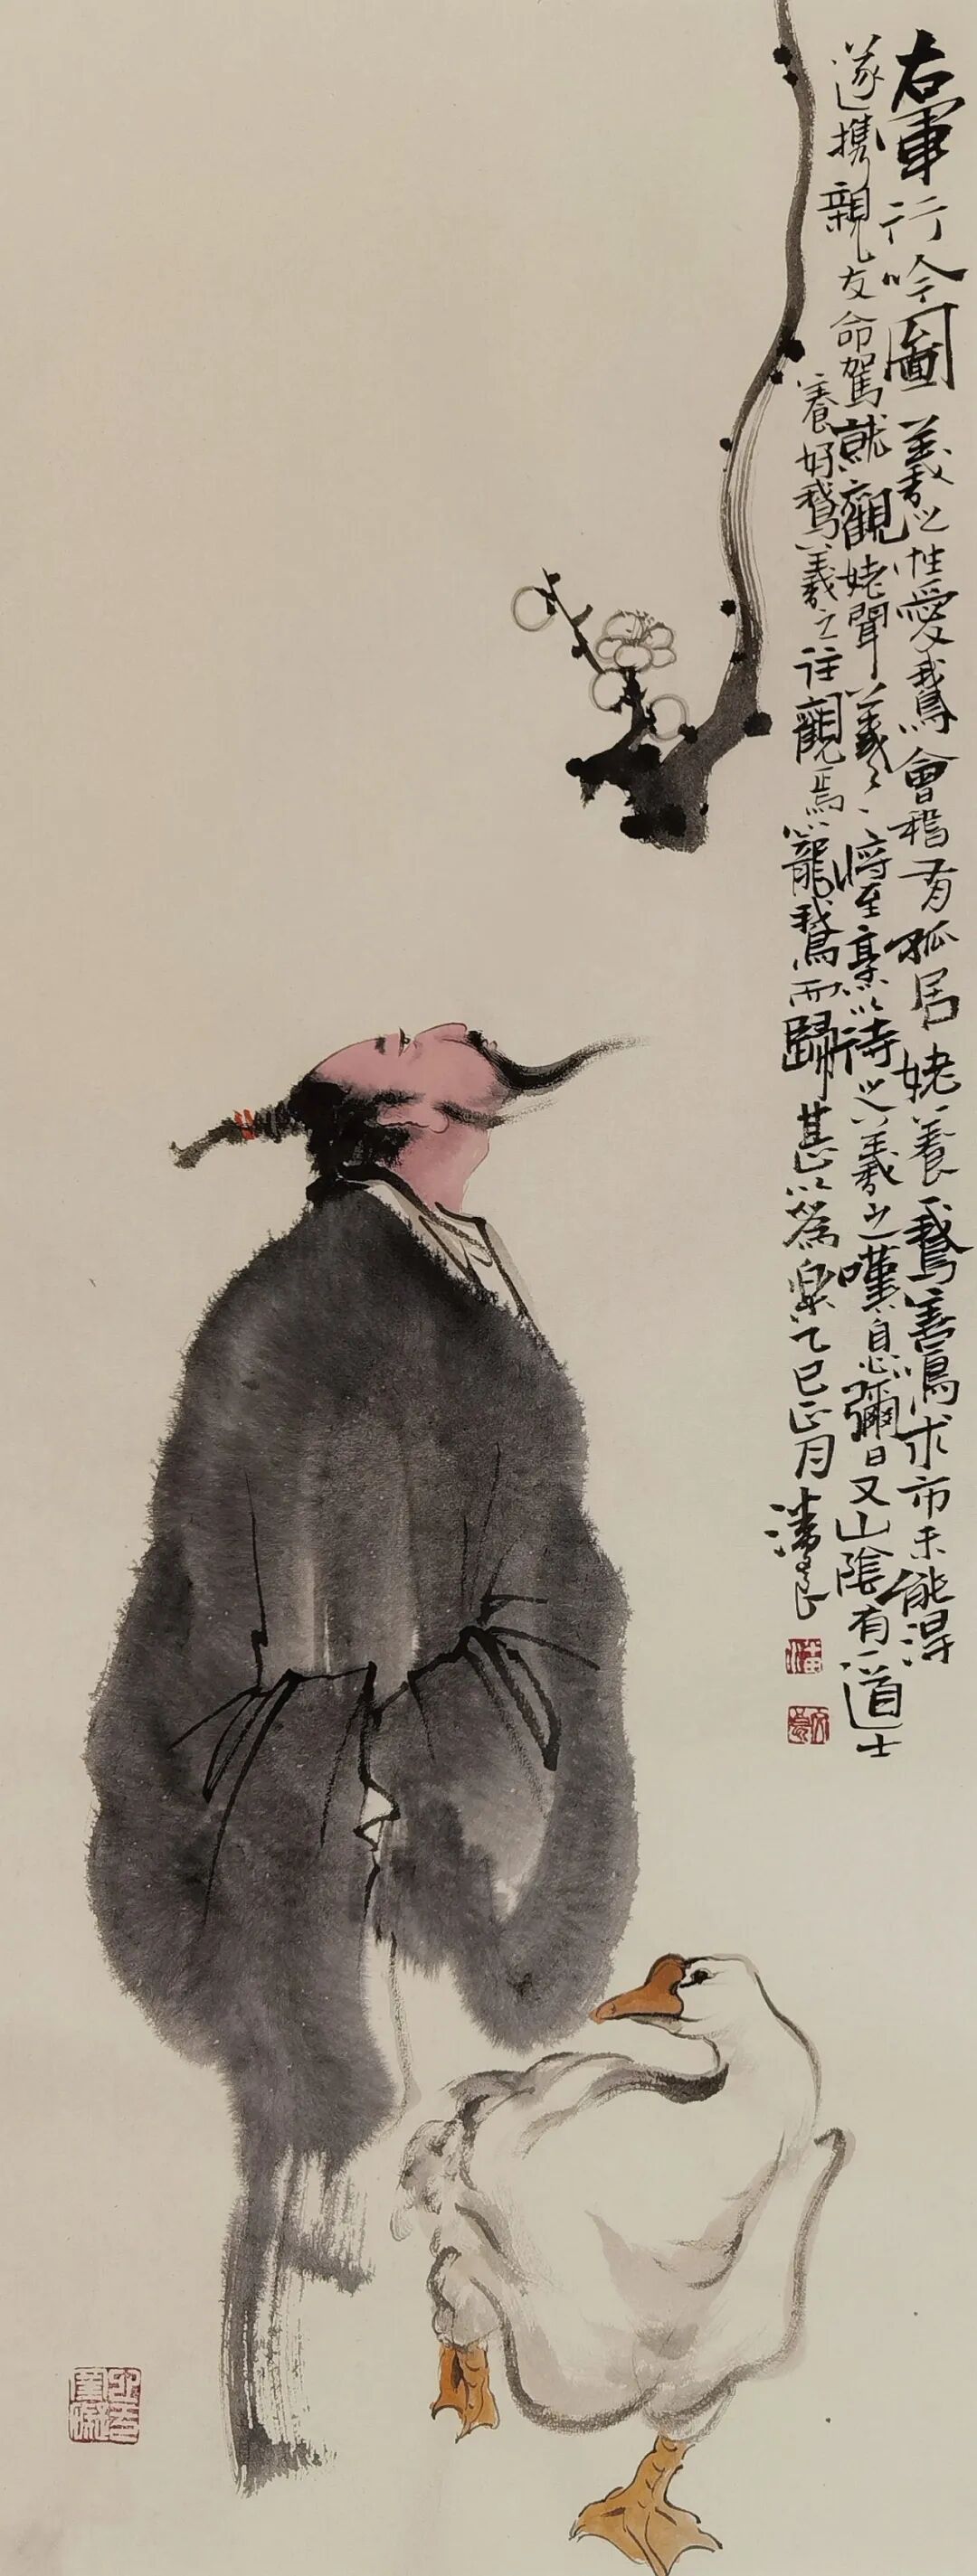 右軍行吟圖 羲之性愛鵝會稽有孤居姥養鵝善鳴求市未能得
遂携親友命駕就觀姥聞羲之將至烹以待之羲之嘆息彌日又山陰有一道士
養好鵝羲之往觀焉籠鵝而歸甚以為樂乙巳正月 潘
潘